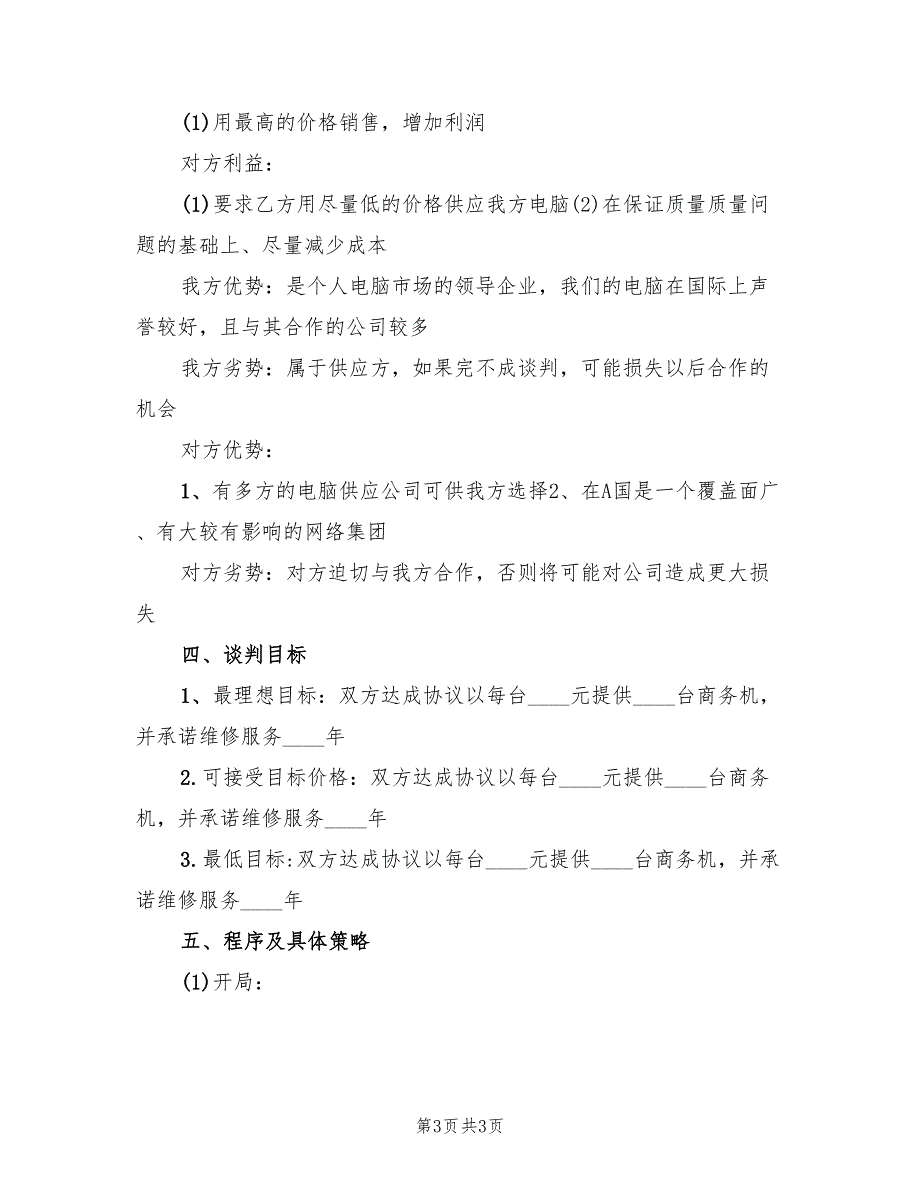 (1)用最高的价格销售，增加利润
对方利益：
(1)要求乙方用尽量低的价格供应我方电脑(2)在保证质量质量问
题的基础上、尽量减少成本
我方优势：是个人电脑市场的领导企业，我们的电脑在国际上声
誉较好，且与其合作的公司较多
我方劣势：属于供应方，如果完不成谈判，可能损失以后合作的
机会
对方优势：
1、有多方的电脑供应公司可供我方选择2、在A国是一个覆盖面广
、有大较有影响的网络集团
对方劣势：对方迫切与我方合作，否则将可能对公司造成更大损
失
四、谈判目标
1、最理想目标：双方达成协议以每台____元提供____台商务机，
并承诺维修服务____年
2.可接受目标价格：双方达成协议以每台____元提供____台商务
机，并承诺维修服务____年
3.最低目标:双方达成协议以每台____元提供____台商务机，并承
诺维修服务____年
五、程序及具体策略
(1)开局：
第3页共3页